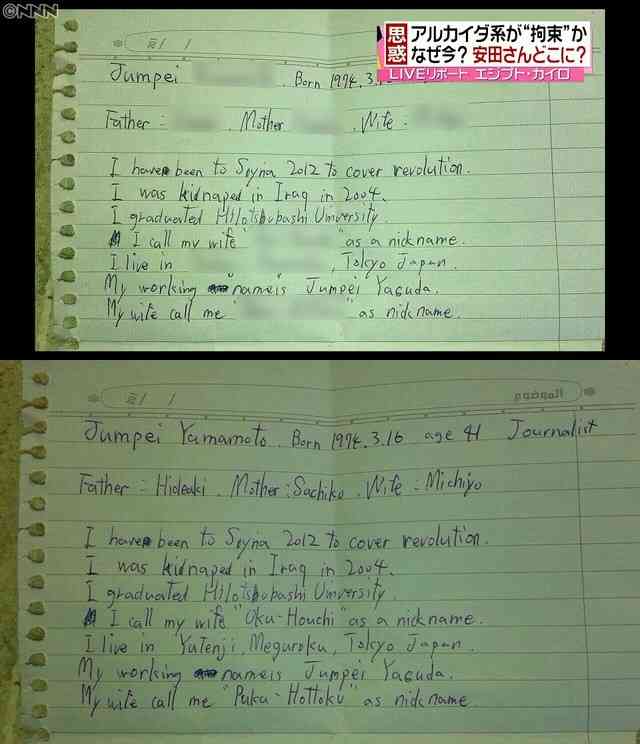 ©NNN
思惑
アルカイダ系が“拘束”か
なぜ今?安田さんどこに?
LIVEリポート エジプト・カイロ
Jumpei . Born 1974.3.16
Father : . Mother . Wife :
I have been to Syria 2012 to cover revolution.
I was kidnaped in Iraq in 2004.
I graduated Hitotsubashi University.
I call my wife " " as a nickname.
I live in , Tokyo Japan.
My working "name is" Jumpei Yasuda.
My wife call me " " as nickname.
الموضوع
Jumpei Yamamoto. Born 1974.3.16 age 41 Journalist
Father : Hideaki. Mother : Sachiko. Wife : Michiyo
I have been to Syria 2012 to cover revolution.
I was kidnaped in Iraq in 2004.
I graduated Hitotsubashi University.
I call my wife "Oku-Houchi" as a nickname.
I live in Yutenji, Meguroku, Tokyo Japan.
My working name is Jumpei Yasuda.
My wife call me "Puku-Hottoku" as nickname.